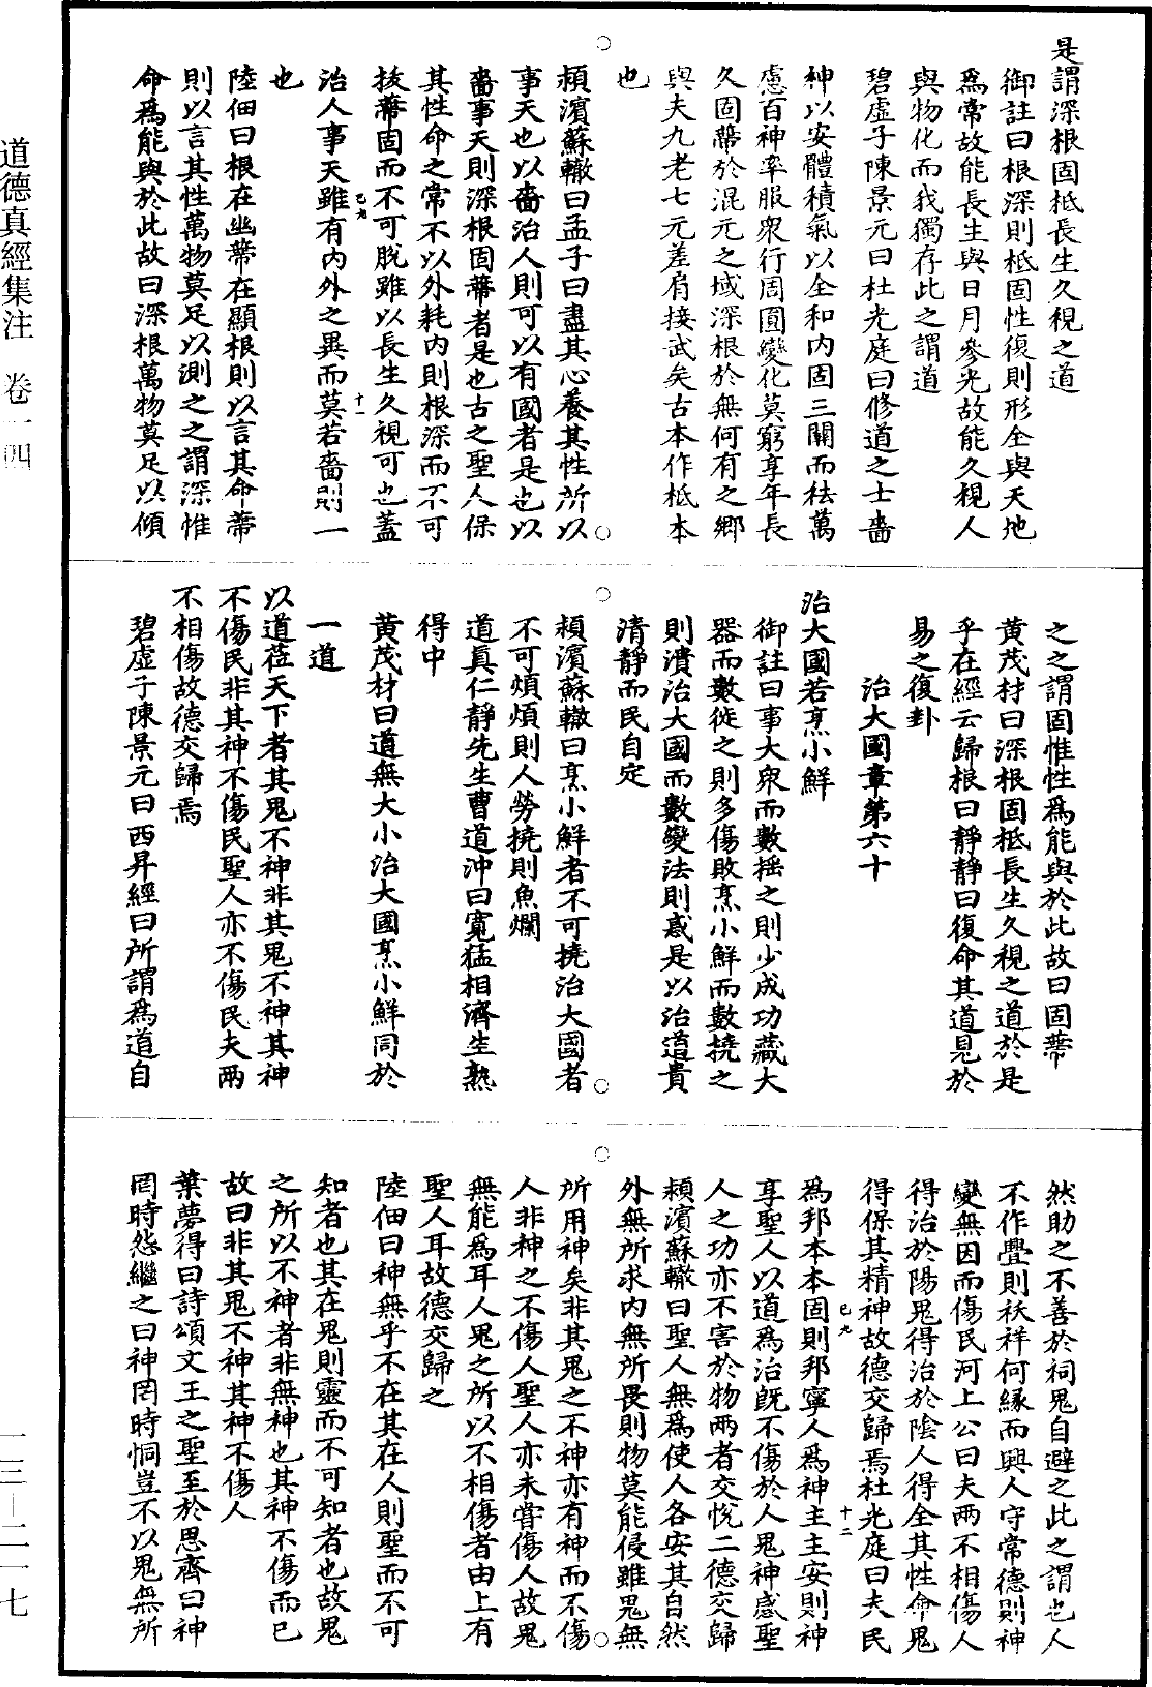 是謂深根固柢長生久視之道
御註曰根深則柢固性復則形全與天地
爲常故能長生與日月參光故能久視人
與物化而我獨存此之謂道
碧虛子陳景元曰杜光庭曰修道之士嗇
神以安體積氣以全和内固三關而袪萬
慮百神率服衆行周圓變化莫窮享年長
久固蔕於混元之域深根於無何有之鄉
與夫九老七元差肩接武矣古本作柢本
也
頴濱蘇轍曰孟子曰盡其心養其性所以
事天也以嗇治人則可以有國者是也以
嗇事天則深根固蔕者是也古之聖人保
其性命之常不以外耗内則根深而不可
拔蔕固而不可脫雖以長生久視可也蓋
治人事天雖有内外之異而莫若嗇則一
也
陸佃曰根在幽蔕在顯根則以言其命蔕
則以言其性萬物莫足以測之之謂深惟
命爲能與於此故曰深根萬物莫足以傾
之之謂固惟性爲能與於此故曰固蔕
黃茂材曰深根固柢長生久視之道於是
乎在經云歸根曰靜靜曰復命其道見於
易之復卦
治大國章第六十
治大國若烹小鮮
御註曰事大衆而數摇之則少成功藏大
器而數徙之則多傷敗烹小鮮而數撓之
則潰治大國而數變法則惑是以治道貴
清靜而民自定
頴濱蘇轍曰烹小鮮者不可撓治大國者
不可煩煩則人勞撓則魚爛
道真仁靜先生曹道沖曰寬猛相濟生熟
得中
黃茂材曰道無大小治大國烹小鮮同於
一道
以道莅天下者其鬼不神非其鬼不神其神
不傷民非其神不傷民聖人亦不傷民夫兩
不相傷故德交歸焉
碧虛子陳景元曰西昇經曰所謂爲道自
然助之不善於祠鬼自避之此之謂也人
不作舋則袄祥何緣而興人守常德則神
變無因而傷民河上公曰夫兩不相傷人
得治於陽鬼得治於陰人得全其性命鬼
得保其精神故德交歸焉杜光庭曰夫民
爲邦本本固則邦寧人爲神主主安則神
享聖人以道爲治既不傷於人鬼神感聖
人之功亦不害於物兩者交悅二德交歸
頴濱蘇轍曰聖人無爲使人各安其自然
外無所求内無所畏則物莫能侵雖鬼無
所用神矣非其鬼之不神亦有神而不傷
人非神之不傷人聖人亦未嘗傷人故鬼
無能爲耳人鬼之所以不相傷者由上有
聖人耳故德交歸之
陸佃曰神無乎不在其在人則聖而不可
知者也其在鬼則靈而不可知者也故鬼
之所以不神者非無神也其神不傷而已
故曰非其鬼不神其神不傷人
葉夢得曰詩頌文王之聖至於思齊曰神
罔時怨繼之曰神罔時恫豈不以鬼無所
己九
十一
己九
十二
道德真經集注　卷一四
一三—二一七